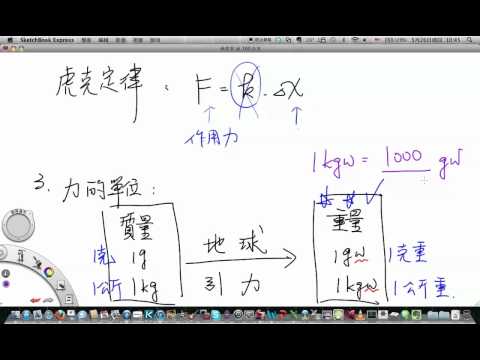 SketchBook Express
虎克定律: F = k · ΔX
作用力
1 kgw = 1000 gw
3. 力的單位:
質量 重量
1克 1g 地球 1gw 1克重
1公斤 1kg 引力 1kgw 1公斤重.